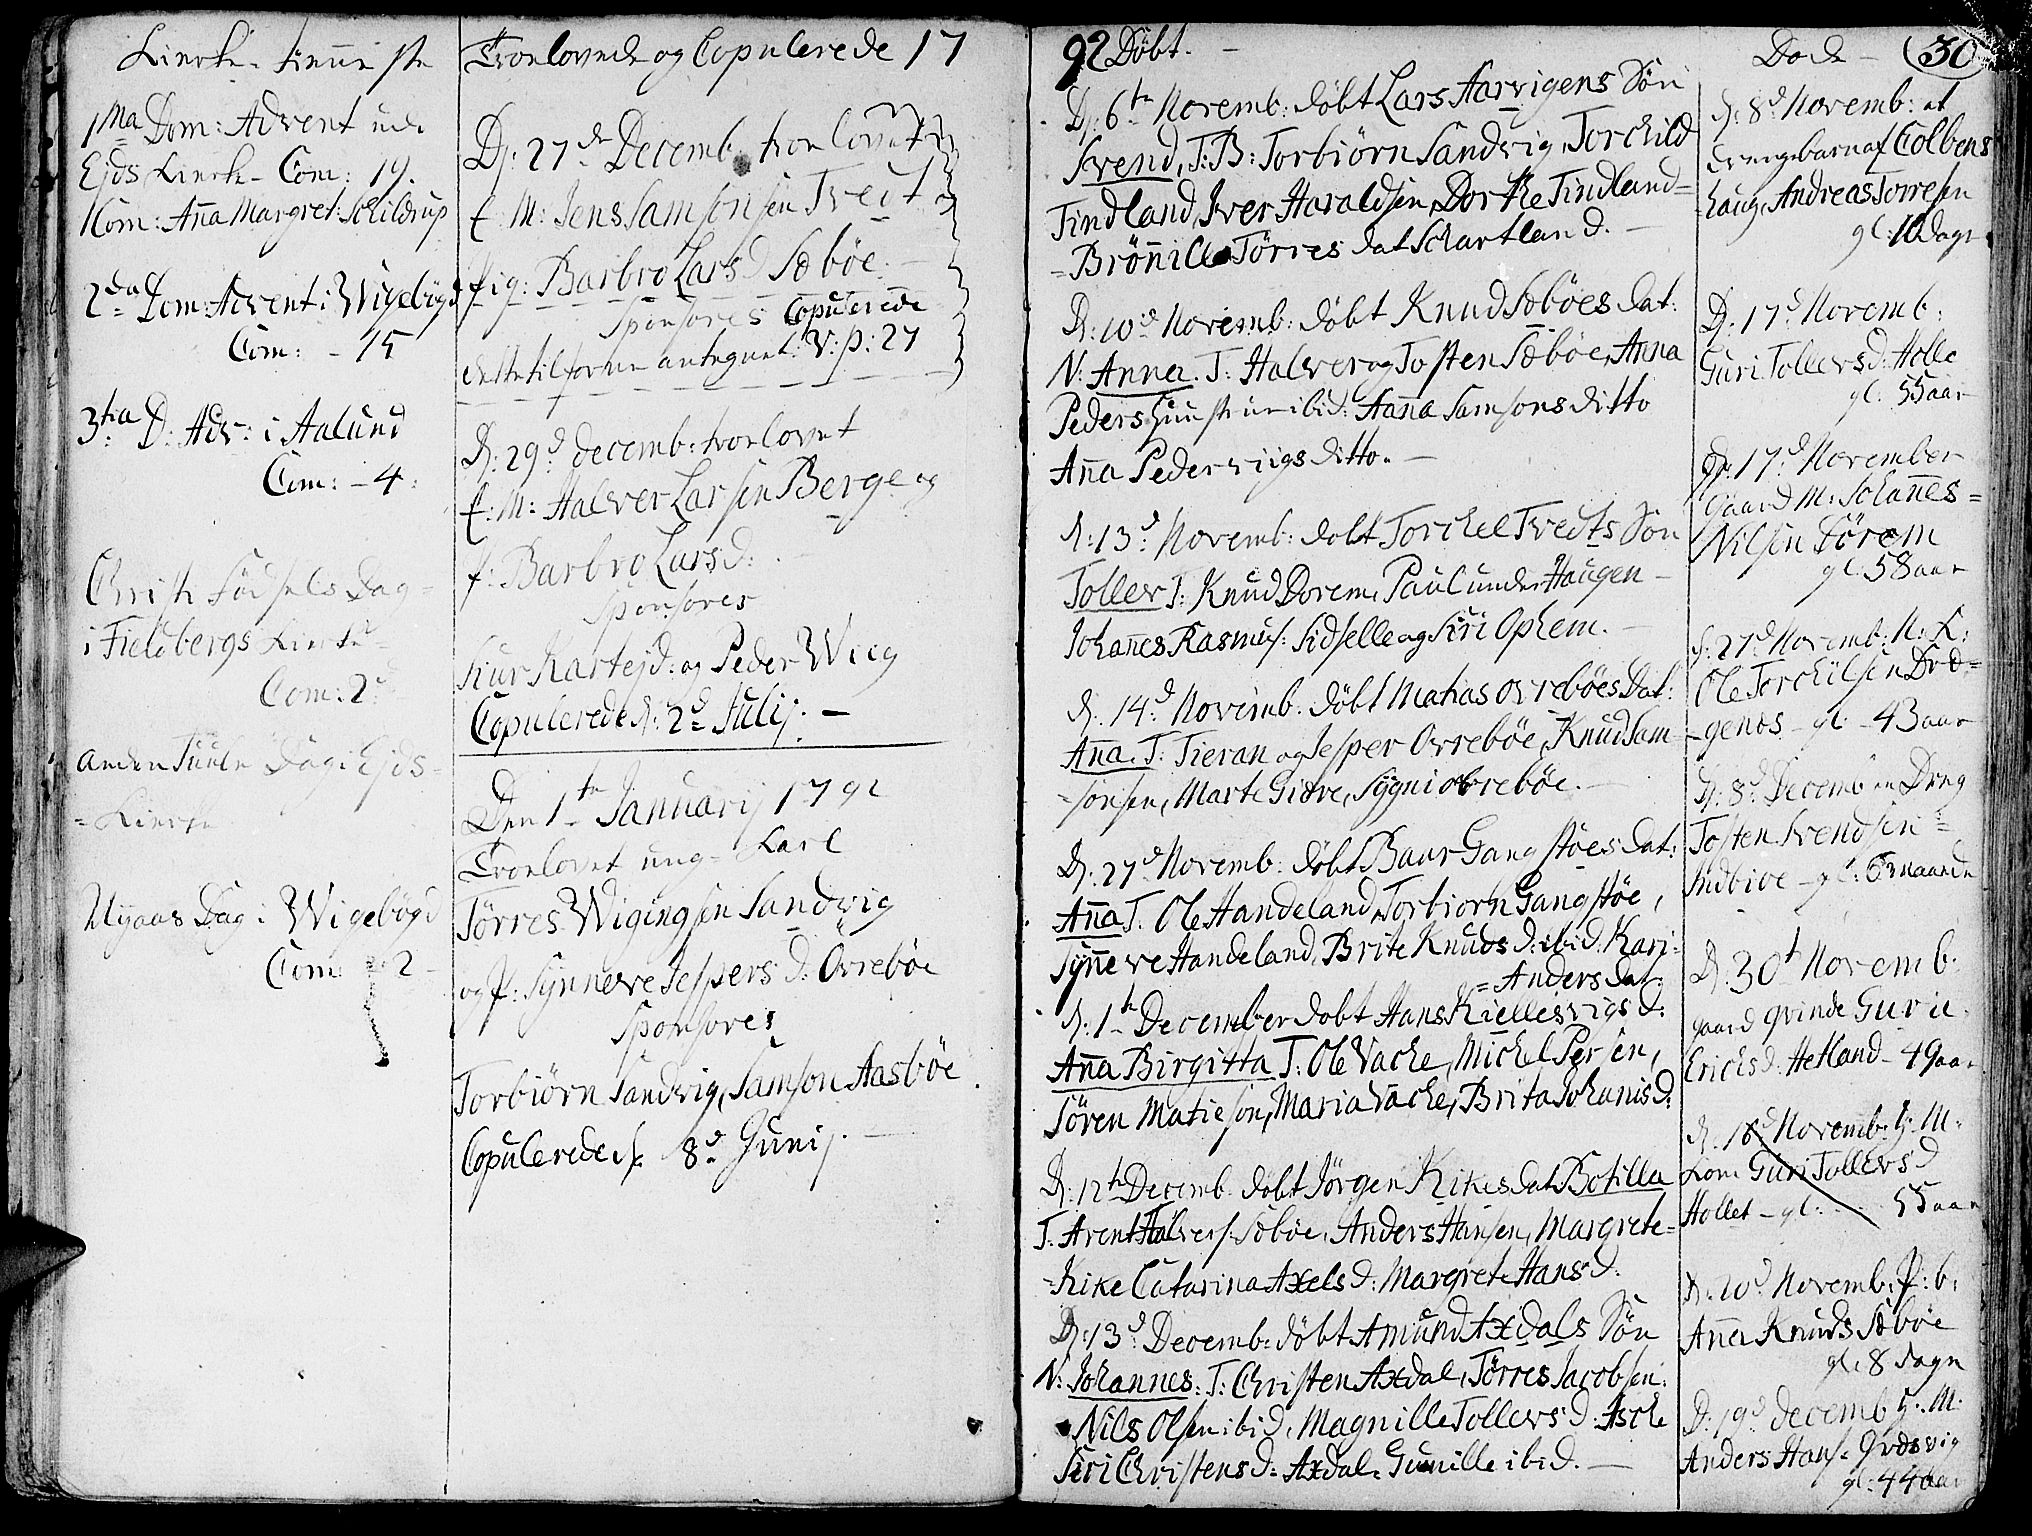 Kircke-tienneste
1ma Dom: Advent udi
Ejds Kircke - Com: 19.
Kom: Aña Margret: Schildrup
2da Dom: Advent i Wigebøgd
Com: - 15
3tia D: Adv: i Aalund
Com: - 4:
Christi Fødsels Dag-
i Fieldbergs Kircke
Com: 2
Anden Juule Dag i Ejds-
=Kircke
Nyaars Dag i Wigebøgd
Com: 2 -
Troelovede og Copulerede 17
D: 27de Decemb. troelovet
E: M: Jens Samsonsen Tvedt
Pig: Barbro Larsd Søbøe. -
Sponsores Copulerede
dette tilforne antegnet: V: p: 27
D: 29d decemb: troelovet
E: M: Halver Larsen Berge og
P: Barbro Larsd:
Sponsores
Siur Kartejd: og Peder Wiig
Copulerede d: 2d Julij. -
Den 1te Januarij 1792
Troelovet ung- Karl
Tørres Wigingsen Sandvig
og P: Synneve Jespers d: Ovrebøe
Sponsores
Torbiørn Sandvig, Samson Aasbøe.
Copulerede d: 8d Junij. -
92 Døbt. -
D: 6te Novemb: døbt Lars Aarvigens Søn
Svend, T: B: Torbiørn Sandvig, Torchild
Tindland, Iver Haraldsen, Dorthe Tindland=
=Brøñille Tørres dat Schartland. -
D: 10d Novemb: døbt Knud Søbøes dat:
N: Anna. T: Halver og Tosten Søbøe, Anna
Peders Huustrue ibid: Aaña Samsons ditto
Aña Pedersviigs ditto. -
D: 13d Novemb: døbt Torchel Tvedts Søn
Toller T: Knud Dorem, Paul under Haugen -
Johañes Rasmus: Sidselle og Siri Ophem. -
D: 14d Novemb. døbt Matias Ovrebøes Dat:
Aña. T: Tieran og Jesper Ovrebøe, Knud Sam-
=sonsen, Marte Giøre, Sygni Ovrebøe. -
D: 27d Novemb: døbt Baar Gangstøes dat:
Aña T. Ole Handeland, Torbiorn Gangstøe,
Sÿñeve Handeland, Brite Knuds d: ibid. Kari-
=Anders dat:
D: 1te December døbt Hans Kiellesvigs d:
Aña Birgitta T: Ole Vacke, Michel Persen,
Søren Matiesøn, Maria Vacke, Brita Johanis d:
D: 12te Decemb. døbt Jørgen Kikes dat Botilla
T: Arent Halvers: Søbøe, Anders Hansen, Margrete-
-Kike Catarina Axels d: Margrete Hans d:
D: 13d Decemb: døbt Amund Axdals Søn
N: Johannes: T: Christen Axdal, Tørres Jacobsen:
Nils Olsen ibid, Magnille Tollers d: Aske
Siri Christens d: Axdal. Gunille ibid. -
Døde - 30
D: 8d Novemb: et
drengebarn af Colbens
haug, Andreas Torresen
gl: 10 dage
D: 17d Novemb:
Guri Tollers d: Holle
gl: 55 aar
D: 17d November
Gaard M: Johañes=
Nilsen Dörem
gl: 58 aar
D: 27d Novemb: N: K:
Ole Torchilsen Död=
-genes - gl: - 43 aar
D: 8d Decemb en Dreng
Tosten Svendsen
Indbioe - gl: 6 maaneder
D: 30t Novemb.
gaard qvinde Gurie
Erichs d: Hetland - 49 aar
D: 18d Novemb: G: M:
Kone Guri Tollers d
Hollet - gl: 55 aar
D: 10d Novemb: P: b:
Aña Knuds Søbøe
gl: 8 dage
D: 19d decemb G: M:
Anders Hans: Qvdsvig
gl: 44 aar